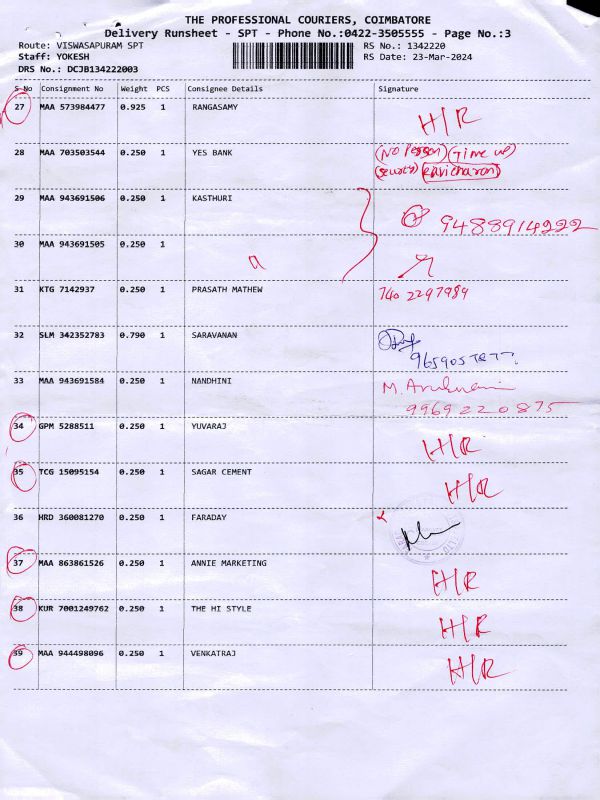 THE PROFESSIONAL COURIERS, COIMBATORE
Delivery Runsheet - SPT - Phone No.:0422-3505555 - Page No.:3
Route: VISWASAPURAM SPT RS No.: 1342220
Staff: YOKESH RS Date: 23-Mar-2024
DRS No.: DCJB134222003
S No Consignment No Weight PCS Consignee Details Signature
27 MAA 573984477 0.925 1 RANGASAMY H/R
28 MAA 703503544 0.250 1 YES BANK (No Person) (Time up)
29 MAA 943691506 0.250 1 KASTHURI 9488914222
30 MAA 943691505 0.250 1
31 KTG 7142937 0.250 1 PRASATH MATHEW 740 2297989
32 SLM 342352783 0.790 1 SARAVANAN
33 MAA 943691584 0.250 1 NANDHINI M.
9969220875
34 GPM 5288511 0.250 1 YUVARAJ H/R
35 TCG 15095154 0.250 1 SAGAR CEMENT H/R
36 HRD 360081270 0.250 1 FARADAY
37 MAA 863861526 0.250 1 ANNIE MARKETING H/R
38 KUR 7001249762 0.250 1 THE HI STYLE H/R
39 MAA 944498096 0.250 1 VENKATRAJ H/R